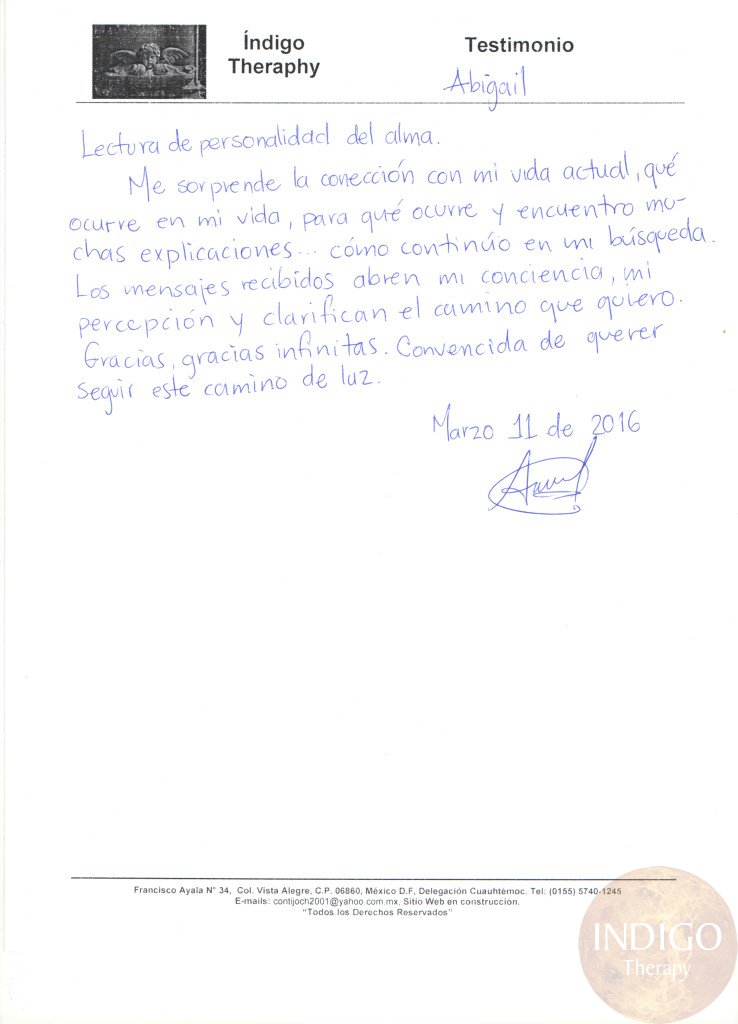 Índigo
Theraphy
Testimonio
Abigail
Lectura de personalidad del alma.
Me sorprende la conección con mi vida actual, qué
ocurre en mi vida, para qué ocurre y encuentro mu-
chas explicaciones... cómo continúo en mi búsqueda.
Los mensajes recibidos abren mi conciencia, mi
percepción y clarifican el camino que quiero.
Gracias, gracias infinitas. Convencida de querer
seguir este camino de luz.
Marzo 11 de 2016
Francisco Ayala N° 34, Col. Vista Alegre, C.P. 06860, México D.F, Delegación Cuauhtémoc. Tel: (0155) 5740-1245
E-mails: contijoch2001@yahoo.com.mx, Sitio Web en construcción.
"Todos los Derechos Reservados"
INDIGO
Therapy